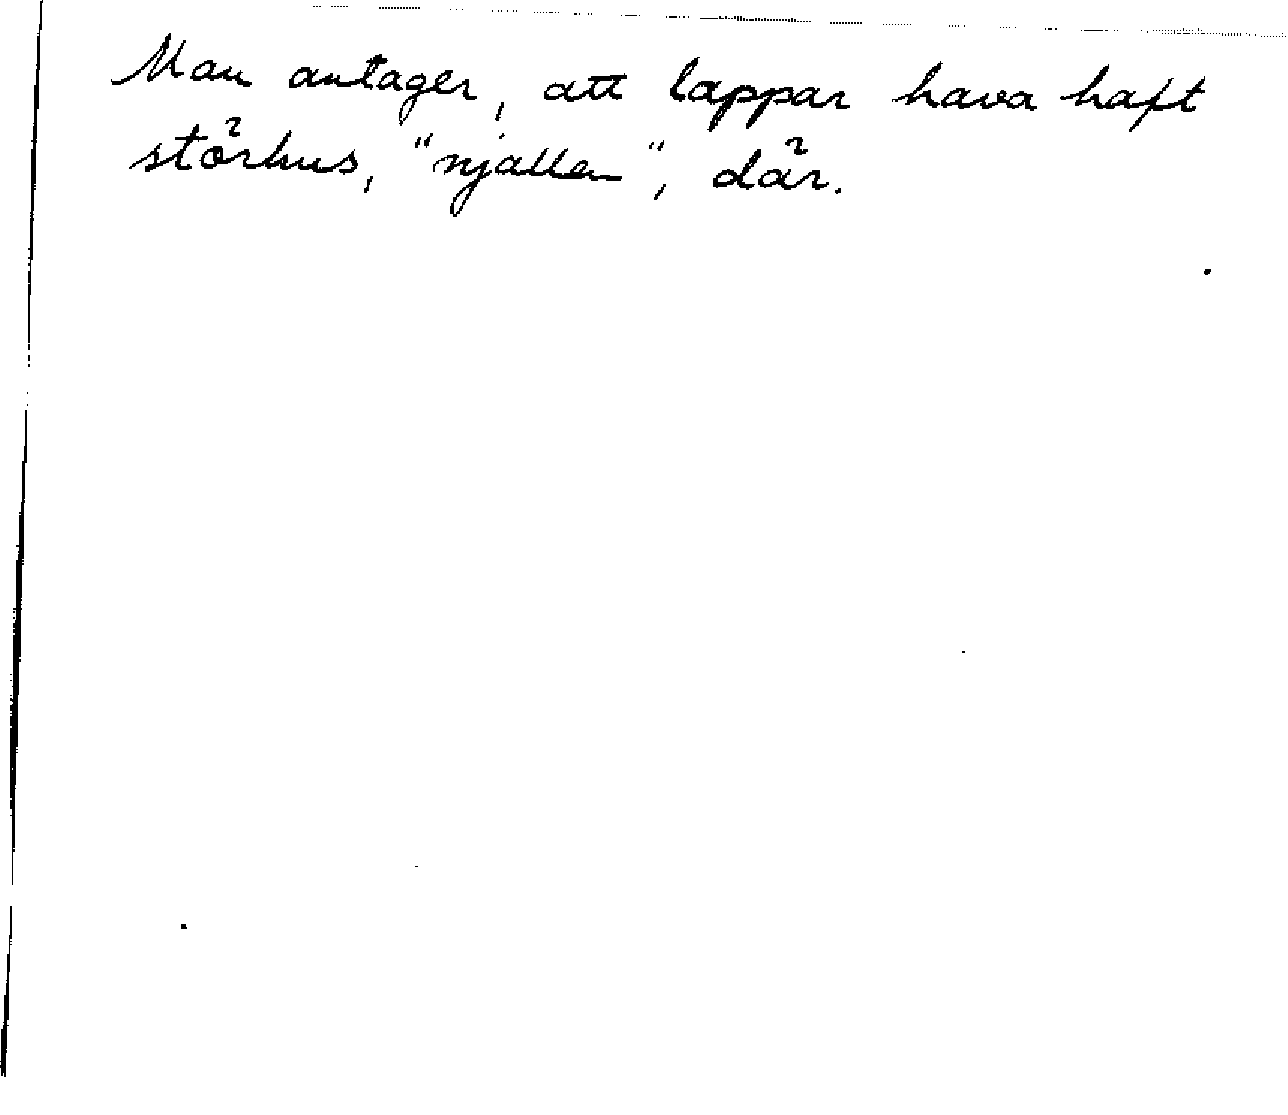 Man antager, att lappar hava haft
störhus, "njallen", där.